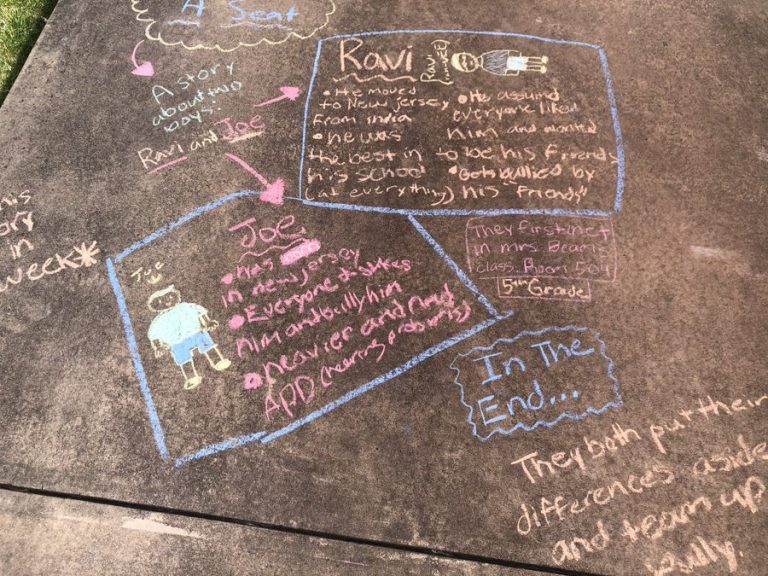 A Seat
A story
about two
boys
Ravi and Joe
Ravi
• He moved
to New Jersey
from India
• he was
the best in
his school
(at everything)
• He assumed
everyone liked
him and wanted
to be his friend
• Gets bullied by
his "friends"
They first met
in mrs. Beam's
class. Room 504
5th Grade
Joe
Joe
• Was
in new jersey
• Everyone dislikes
him and bully him
• heavier and had
APD (hearing problems)
in
week*
In The
End...
They both put their
differences aside
and team up
bully.